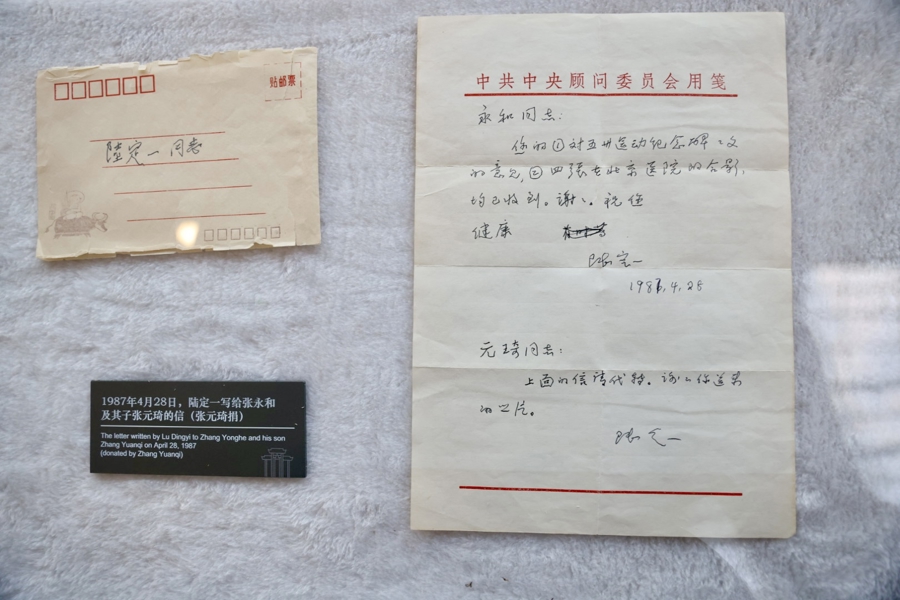 贴邮票
陆定一 同志
1987年4月28日，陆定一写给张永和
及其子张元琦的信（张元琦捐）
The letter written by Lu Dingyi to Zhang Yonghe and his son
Zhang Yuanqi on April 28, 1987
(donated by Zhang Yuanqi)
中共中央顾问委员会用笺
永和同志：
您的①对五卅运动纪念碑文
的意见，②四张在北京医院的合影，
均已收到。谢谢。祝您
健康
陆定一
1987.4.28
元琦同志：
上面的信请代转。谢谢你送来
的照片。
陆定一